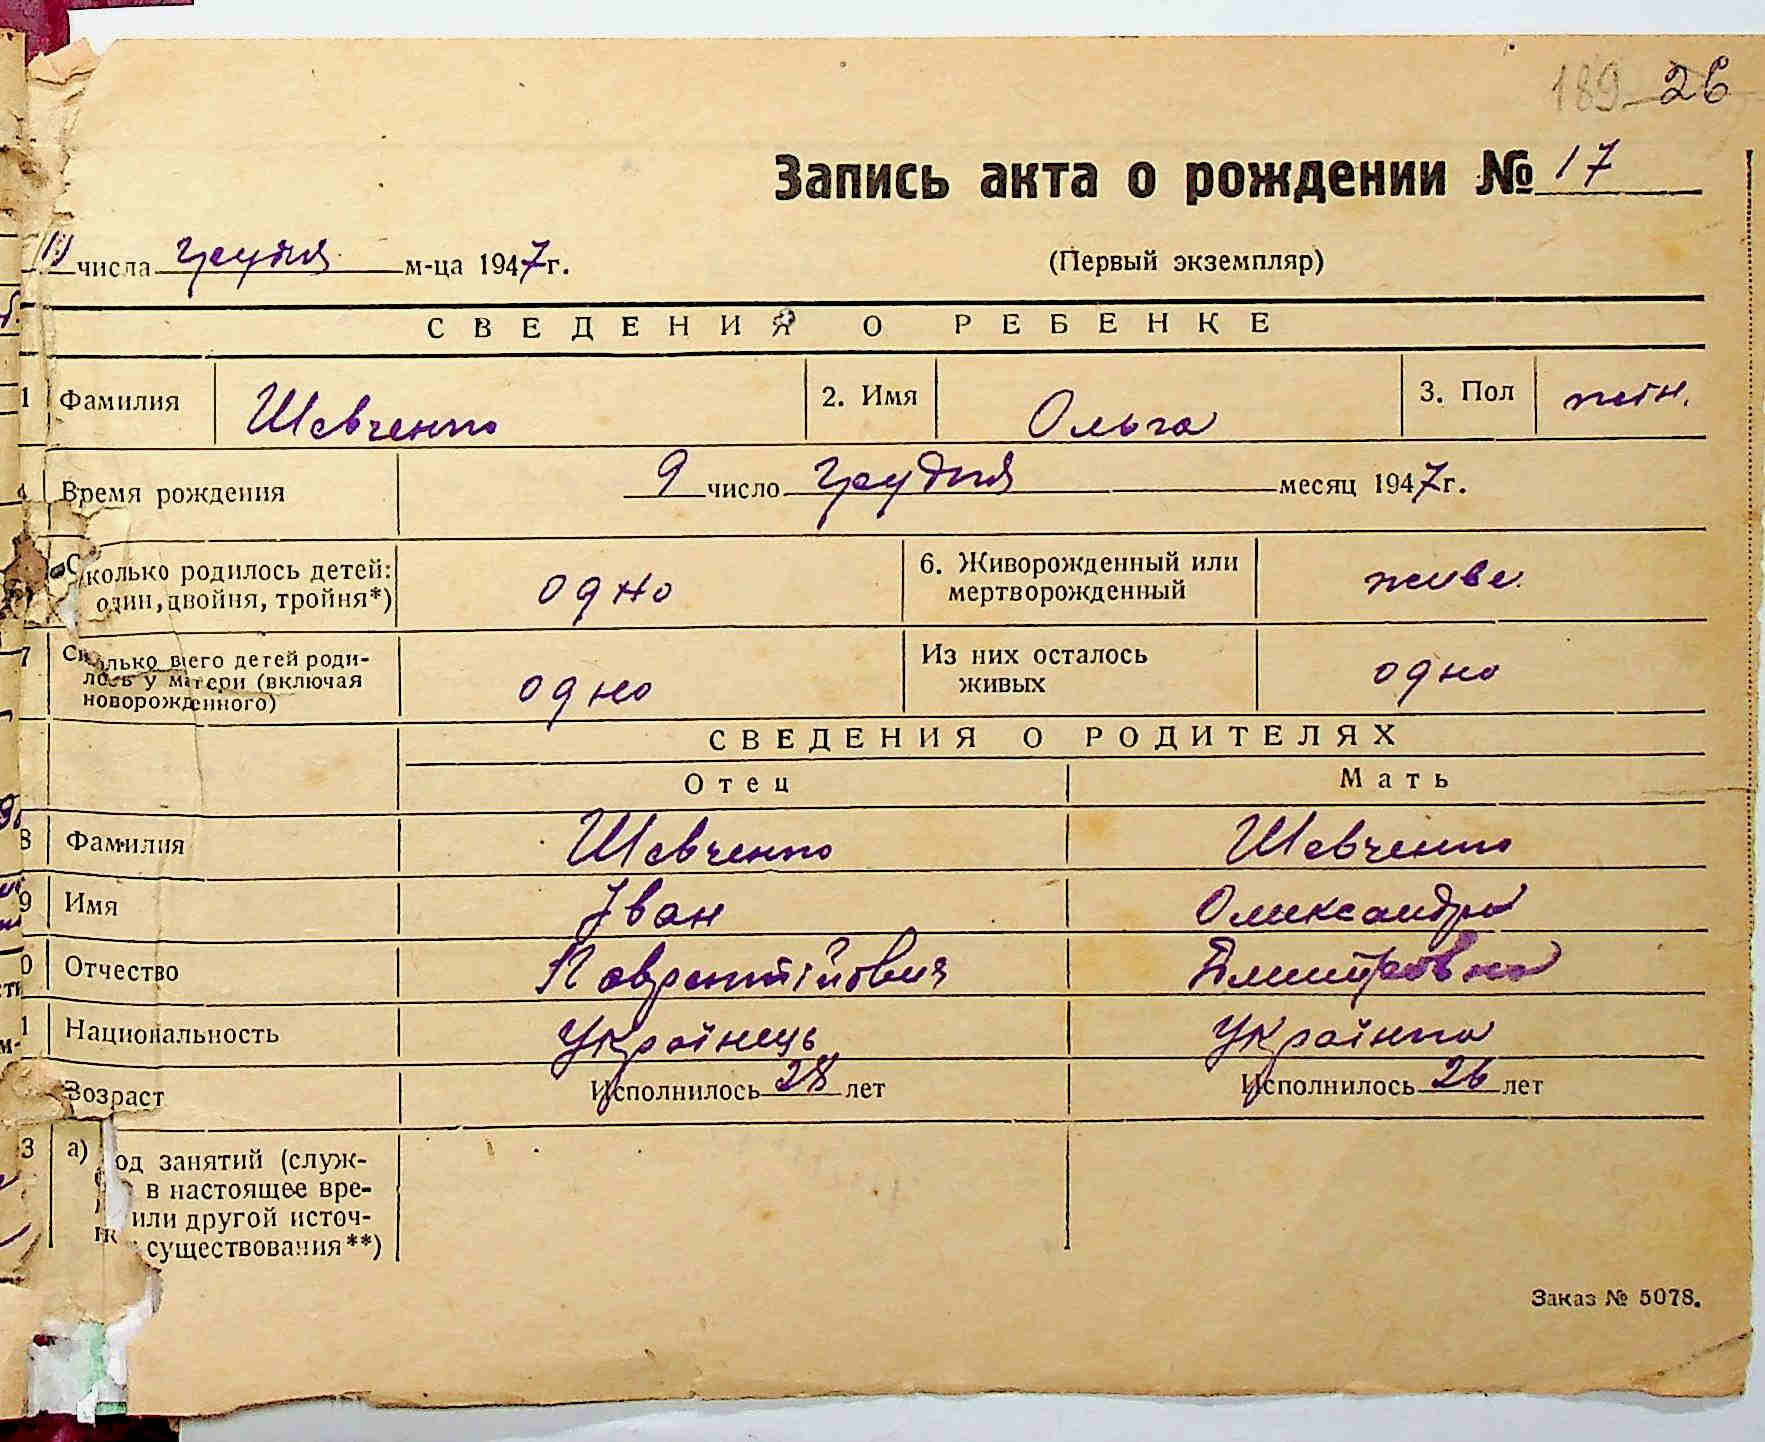 189 26
Запись акта о рождении № 17
числа грудня м-ца 1947 г.
(Первый экземпляр)
СВЕДЕНИЯ О РЕБЕНКЕ
1 Фамилия Шевченко 2. Имя Ольга 3. Пол жін.
Время рождения 9 число грудня месяц 1947 г.
Сколько родилось детей: один, двойня, тройня*) одно 6. Живорожденный или мертворожденный живе
7 Сколько всего детей родилось у матери (включая новорожденного) одно Из них осталось живых одно
СВЕДЕНИЯ О РОДИТЕЛЯХ
Отец Мать
8 Фамилия Шевченко Шевченко
9 Имя Іван Олександра
0 Отчество Лаврентійович Дмитровна
1 Национальность Українець Українка
Возраст Исполнилось 28 лет Исполнилось 26 лет
3 а) од занятий (служ-
в настоящее вре-
или другой источ-
существования**)
Заказ № 5078.